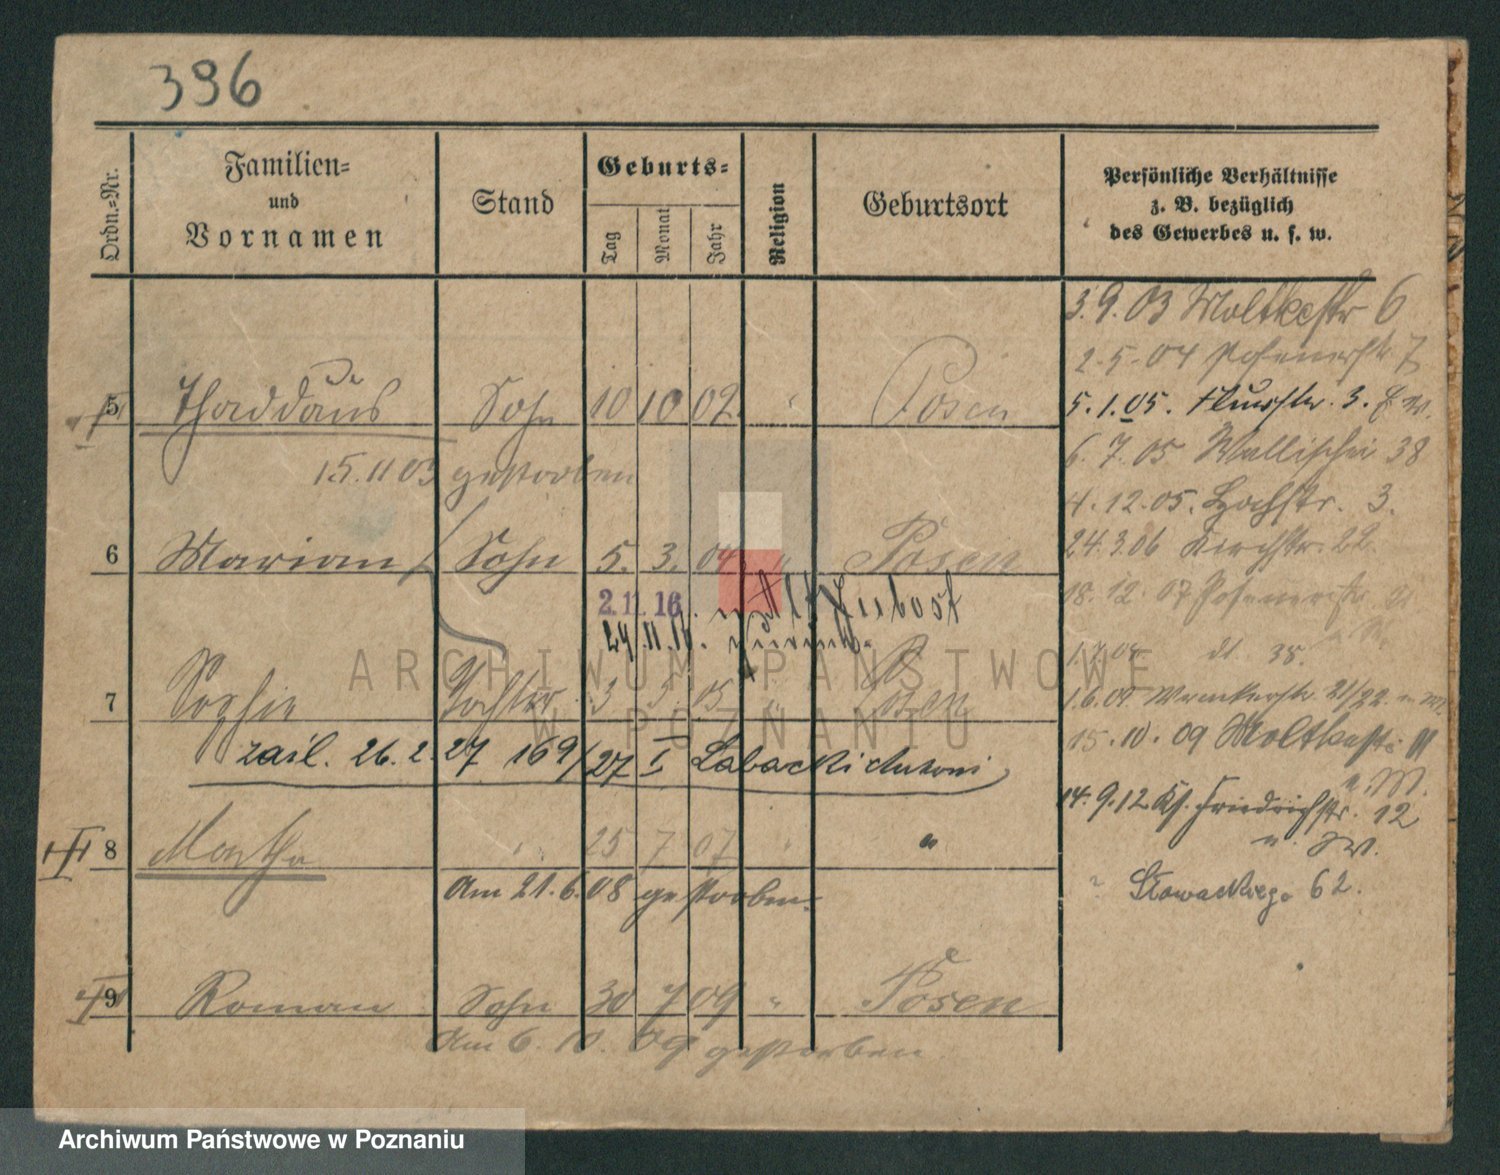 396
Ordn.=Nr.
Familien=
und
Vornamen
Stand
Geburts=
Tag
Monat
Jahr
Religion
Geburtsort
Persönliche Verhältnisse
z. B. bezüglich
des Gewerbes u. s. w.
3.9.03 Moltkestr 6
2.5.04 Posenerstr 7
5 Thaddäus Sohn 10 10 02 " Posen
5.1.05. 3.
6.7.05 Wallischei 38
15.11 03 gestorben
4.12.05. Hochstr. 3.
24.3.06 Kirchstr. 22
6 Marian Sohn 5. 3. 04 " Posen
18.12.07 Posenerstr
2.11.16.
24.11.16.
38.
ARCHIWUM PAŃSTWOWE
W POZNANIU
7 Sophie Tochter 3 5 05 " Posen
21/22
15.10.09 Moltkestr.
zaśl. 26.2.27 169/27 I Łabacki Antoni
14.9.12 Kl. Friedrichstr. 12
u. W.
8 Martha " 25 7 07 " "
Am 21.6.08 gestorben.
Słowackiego 62.
9 Roman Sohn 30 7 09 " Posen
Am 6. 10. 09 gestorben.
Archiwum Państwowe w Poznaniu